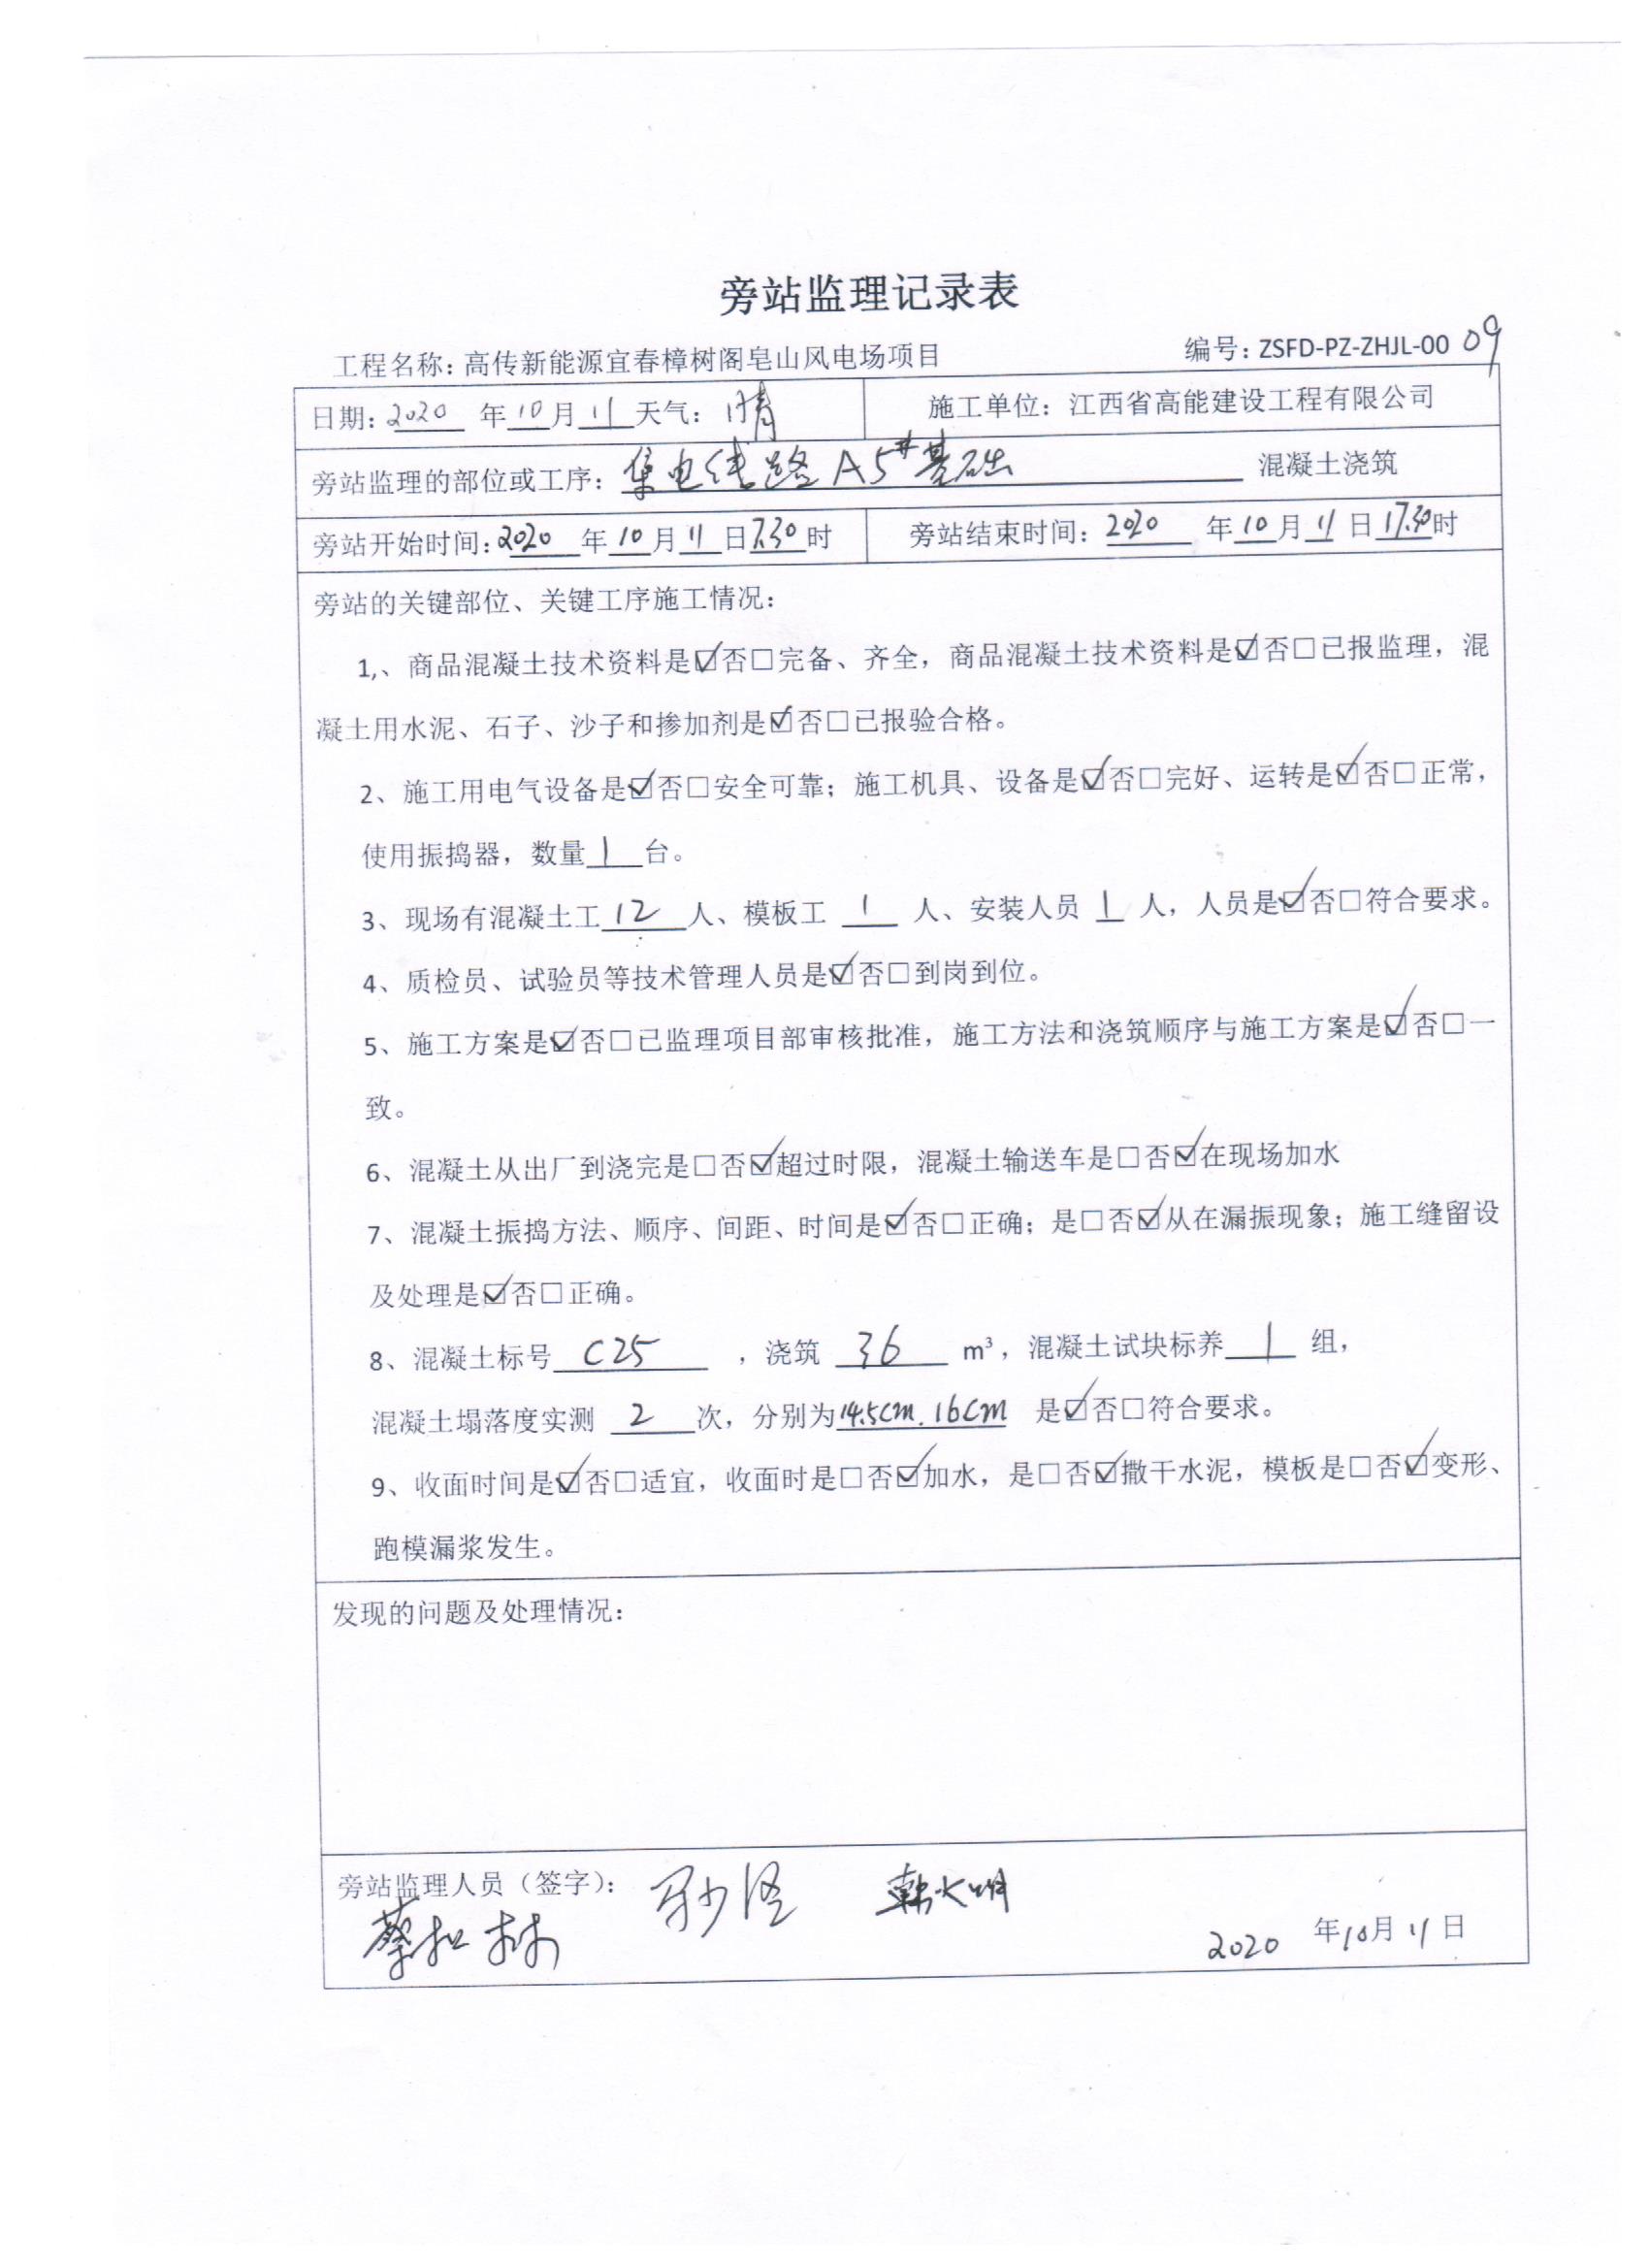 旁站监理记录表
工程名称：高传新能源宜春樟树阁皂山风电场项目 编号：ZSFD-PZ-ZHJL-00 09
日期：2020 年 10 月 11 天气：晴 施工单位：江西省高能建设工程有限公司
旁站监理的部位或工序：集电线路A5#基础 混凝土浇筑
旁站开始时间：2020 年 10 月 11 日 7.30 时 旁站结束时间：2020 年 10 月 11 日 17.30 时
旁站的关键部位、关键工序施工情况：
1,、商品混凝土技术资料是☑否□完备、齐全，商品混凝土技术资料是☑否□已报监理，混
凝土用水泥、石子、沙子和掺加剂是☑否□已报验合格。
2、施工用电气设备是☑否□安全可靠；施工机具、设备是☑否□完好、运转是☑否□正常，
使用振捣器，数量 1 台。
3、现场有混凝土工 12 人、模板工 1 人、安装人员 1 人，人员是☑否□符合要求。
4、质检员、试验员等技术管理人员是☑否□到岗到位。
5、施工方案是☑否□已监理项目部审核批准，施工方法和浇筑顺序与施工方案是☑否□一
致。
6、混凝土从出厂到浇完是□否☑超过时限，混凝土输送车是□否☑在现场加水
7、混凝土振捣方法、顺序、间距、时间是☑否□正确；是□否☑从在漏振现象；施工缝留设
及处理是☑否□正确。
8、混凝土标号 C25 ，浇筑 36 m³，混凝土试块标养 1 组，
混凝土塌落度实测 2 次，分别为 14.5cm. 16cm 是☑否□符合要求。
9、收面时间是☑否□适宜，收面时是□否☑加水，是□否☑撒干水泥，模板是□否☑变形、
跑模漏浆发生。
发现的问题及处理情况：
旁站监理人员（签字）：
2020 年 10 月 11 日